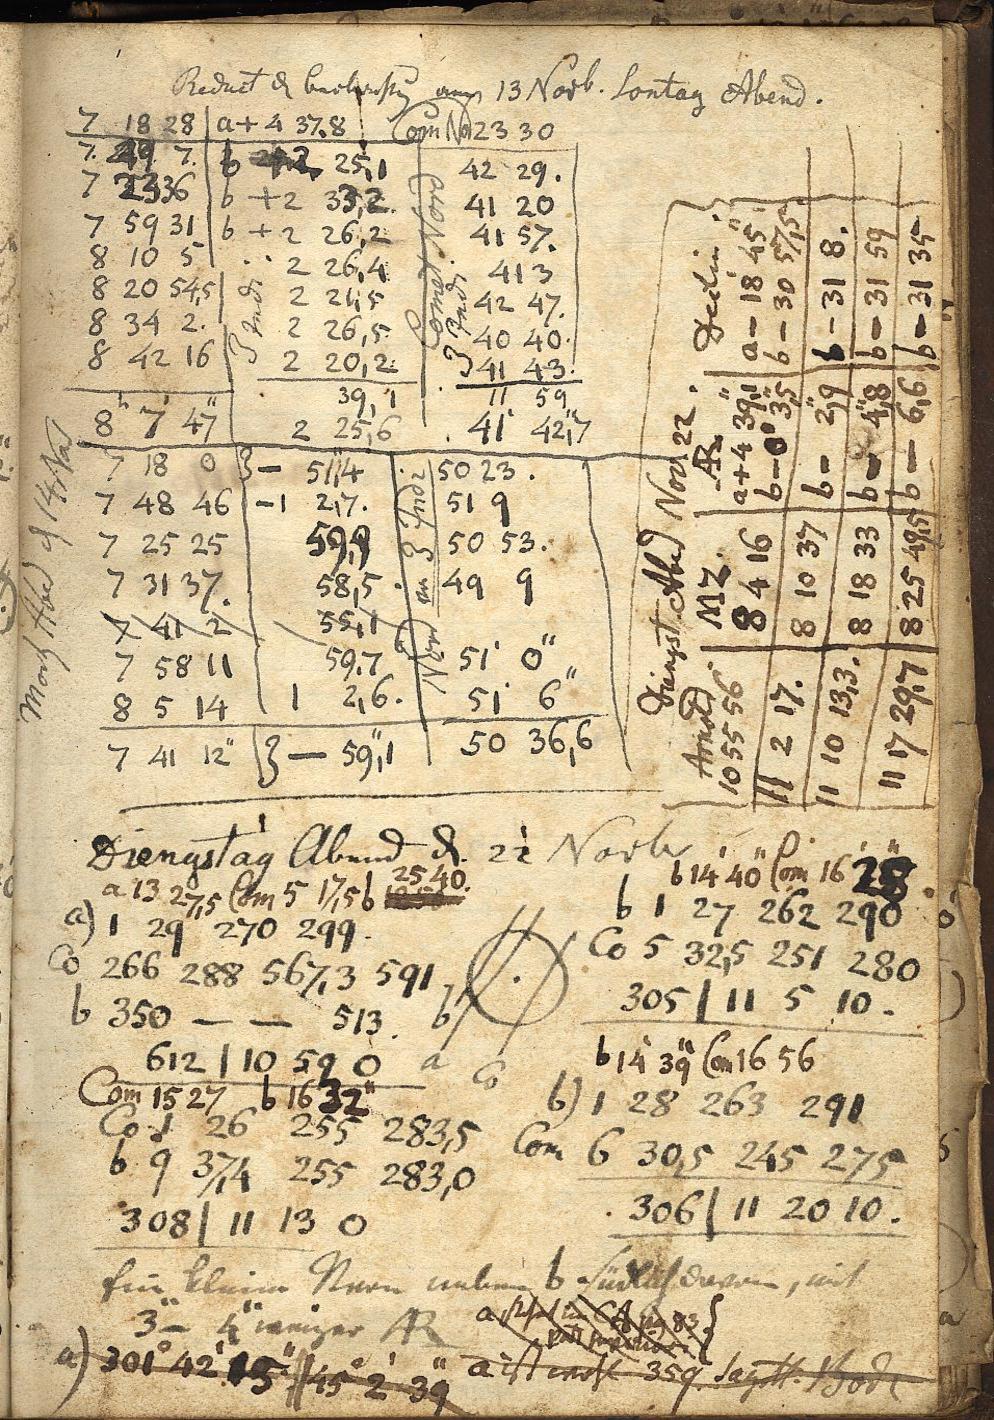 am 13 Novb. Sontag Abend.
7 18 28 | a + 4 37,8 Com No 23 30
7. 49 7. b 25,1 42 29.
7 2336 b + 2 33,2. 41 20
7 59 31 b + 2 26,2 41 57.
8 10 5 . . 2 26,4 41 3
8 20 54,5 2 21,5 42 47.
8 34 2. 2 26,5 40 40.
8 42 16 2 20,2 41 43.
39,1 11 59
8 7' 47" 2 25,6 41' 42",7
Comet Nord
7 18 0 } – 51",4 50 23.
7 48 46 – 1 2,7. 51 9
7 25 25 59,9 50 53.
7 31 37. 58,5 49 9
7 41 2 55,1
7 58 11 59,7 51' 0"
8 5 14 1 2,6. 51' 6"
7 41 12" } — 59",1 50 36,6
Abd d 14 Nov
Diengst. Abed Nov 22.
MZ. AR Declin.
10 55 56 8 4 16 a + 4 39,1 a – 18' 45"
11 2 17. 8 10 37 b – 0' 3",5 b – 30 57,5
11 10 13,3. 8 18 33 b – 2",9 b – 31 8.
11 17 29,7 8 25 49,5 b – 4",8 b – 31 59
b — 6,6 b – 31 35
Diengstag Abend d. 22 Novb
a 13 27,5 Com 5 17,5 b 25 40.
a) 1 29 270 299.
Co 266 288 567,3 591
b 350 — — 513.
612 | 10 59 0
b a Co
Com 15 27 b 16 32"
Co 1 26 255 283,5
b 9 37,4 255 283,0
308 | 11 13 0
b 14' 40" Com 16' 28"
b 1 27 262 290
Co 5 32,5 251 280
305 | 11 5 10.
b 14' 39" Com 16 56
b) 1 28 263 291
Com 6 30,5 245 275
306 | 11 20 10.
Ein kleiner Stern neben b südlich davon, mit
3" – 4" weniger AR
a) 301° 42' 15" 45° 2' 39" a ist 359 Sagitt. Bode